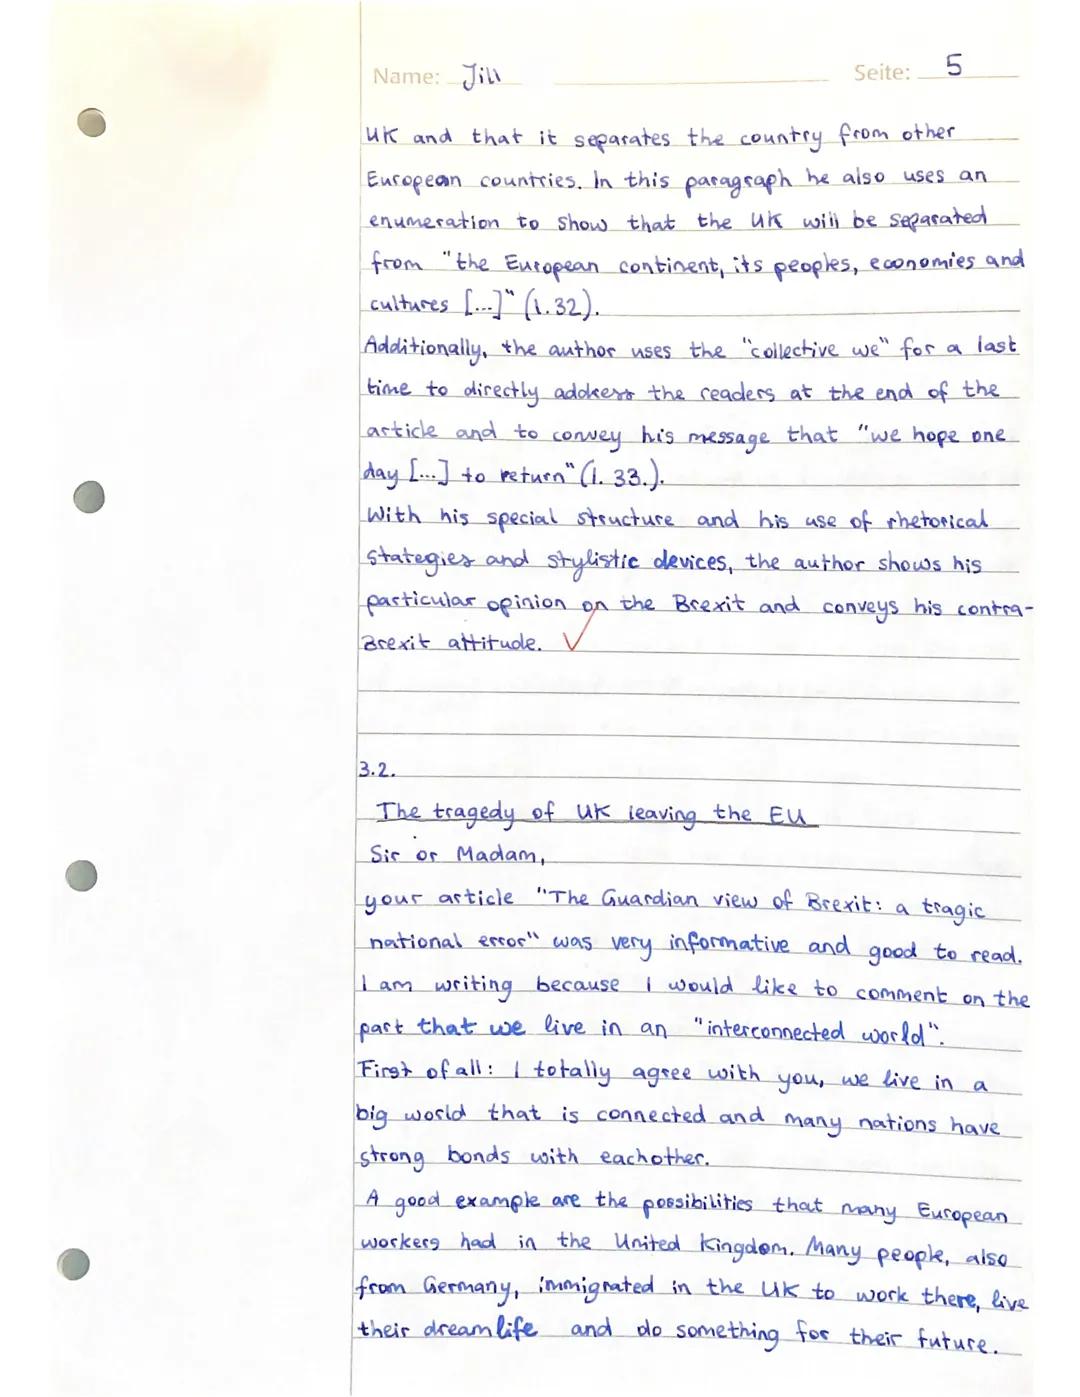 Name: Jill Seite: 5
UK and that it separates the country from other
European countries. In this paragraph he also uses an
enumeration to show that the UK will be separated
from "the European continent, its peoples, economies and
cultures [...]" (l.32).
Additionally, the author uses the "collective we" for a last
time to directly address the readers at the end of the
article and to convey his message that "we hope one
day [...] to return" (l. 33.).
With his special structure and his use of rhetorical
stategies and stylistic devices, the author shows his
particular opinion on the Brexit and conveys his contra-
Brexit attitude. ✓
3.2.
The tragedy of UK leaving the EU
Sir or Madam,
your article "The Guardian view of Brexit: a tragic
national error" was very informative and good to read.
I am writing because I would like to comment on the
part that we live in an "interconnected world".
First of all: I totally agree with you, we live in a
big world that is connected and many nations have
strong bonds with eachother.
A good example are the possibilities that many European
workers had in the United Kingdom. Many people, also
from Germany, immigrated in the UK to work there, live
their dreamlife and do something for their future.